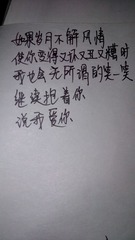 如果岁月不解风情
使你变得又坏又丑又糟时
我也会无所谓的笑一笑
继续抱着你
说我爱你